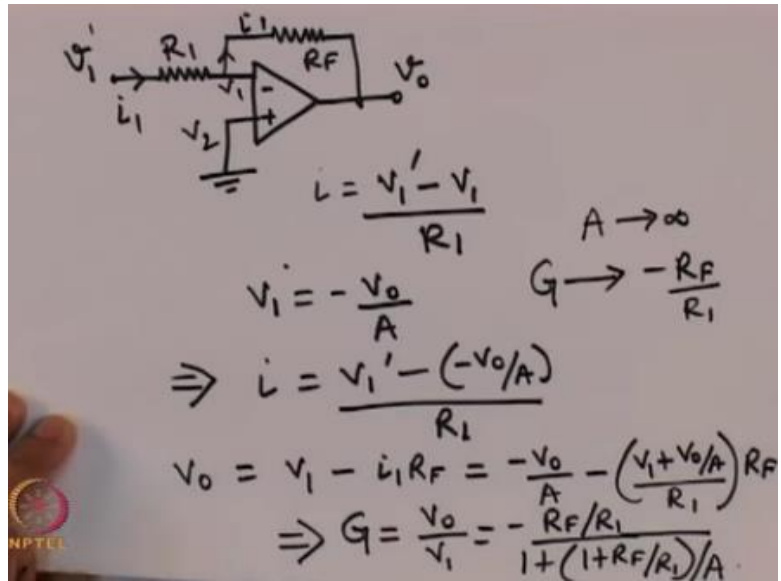 i1
v1' R1 RF v0
v1 -
i1
v2 +
i = (v1' - v1) / R1
A → ∞
v1 = - v0 / A
G → - RF / R1
⇒ i = (v1' - (-v0/A)) / R1
v0 = v1 - i1RF = -v0 / A - ((v1 + v0/A) / R1) RF
⇒ G = v0 / v1 = - (RF/R1) / (1 + (1 + RF/R1)/A)
NPTEL